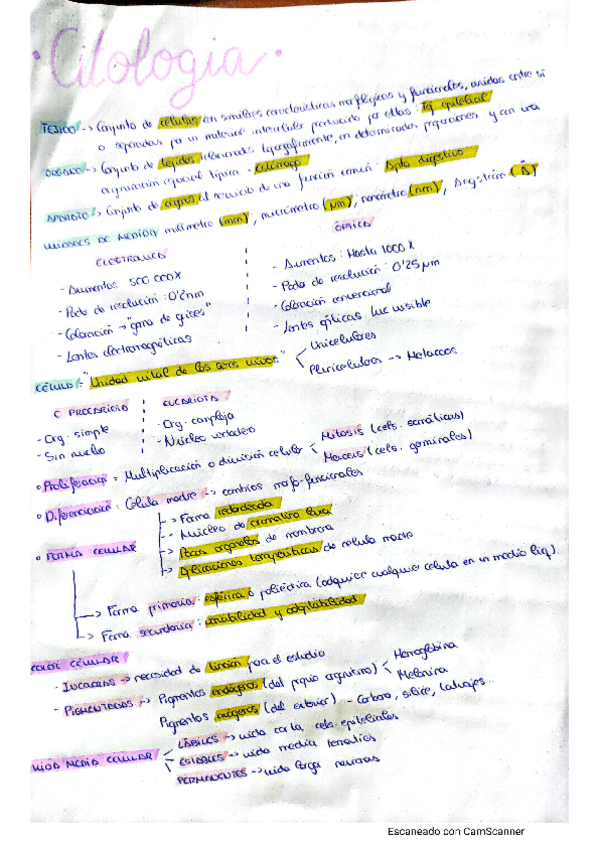 · Citología ·
TEJIDO -> Conjunto de células con similares características morfológicas y funcionales, unidas entre sí
o separadas por un material intercelular producido por ellas: Tej. epitelial
ÓRGANO -> Conjunto de tejidos relacionados topográficamente, en determinadas proporciones y con una
organización espacial típica: estómago
APARATO -> Conjunto de órganos al servicio de una función común: Apto digestivo
UNIDADES DE MEDIDA milímetro (mm), micrómetro (µm), nanómetro (nm), Angström (Å)
ELECTRÓNICO
- Aumentos 500 000X
- Poder de resolución: 0'2nm
- Coloración -> "gama de grises"
- Lentes electromagnéticas
ÓPTICO
- Aumentos: Hasta 1000X
- Poder de resolución: 0'25 µm
- Coloración convencional
- Lentes ópticas luz visible
CÉLULA: "Unidad vital de los seres vivos"
Unicelulares
Pluricelulares -> Metazoos
C PROCARIOTA
- Org. simple
- Sin nucleo
EUCARIOTA
- Org. compleja
- Núcleo verdadero
· Proliferación = Multiplicación o división celular
Mitosis (cels. somáticas)
Meiosis (cels. germinales)
· Diferenciación: Célula madre -> cambios morfo-funcionales
-> Forma redondeada
-> Núcleo de cromatina laxa
-> Pocos orgánulos de membrana
-> Aplicaciones terapeúticas de celula madre
· FORMA CELULAR
-> Forma primaria: esférica o poliédrica (adquiere cualquier celula en un medio liq).
-> Forma secundaria: variabilidad y adaptabilidad
COLOR CÉLULAR
- INCOLORAS -> necesidad de tinción para el estudio
- PIGMENTADAS -> Pigmentos endógenos (del propio organismo)
Hemoglobina
Melanina
Pigmentos exógenos (del exterior) - Carbono, sílice, tatuajes...
VIDA MEDIA CELULAR
LÁBILES -> vida corta cels. epiteliales
ESTABLES -> vida media
PERMANENTES -> vida larga neuronas
Escaneado con CamScanner